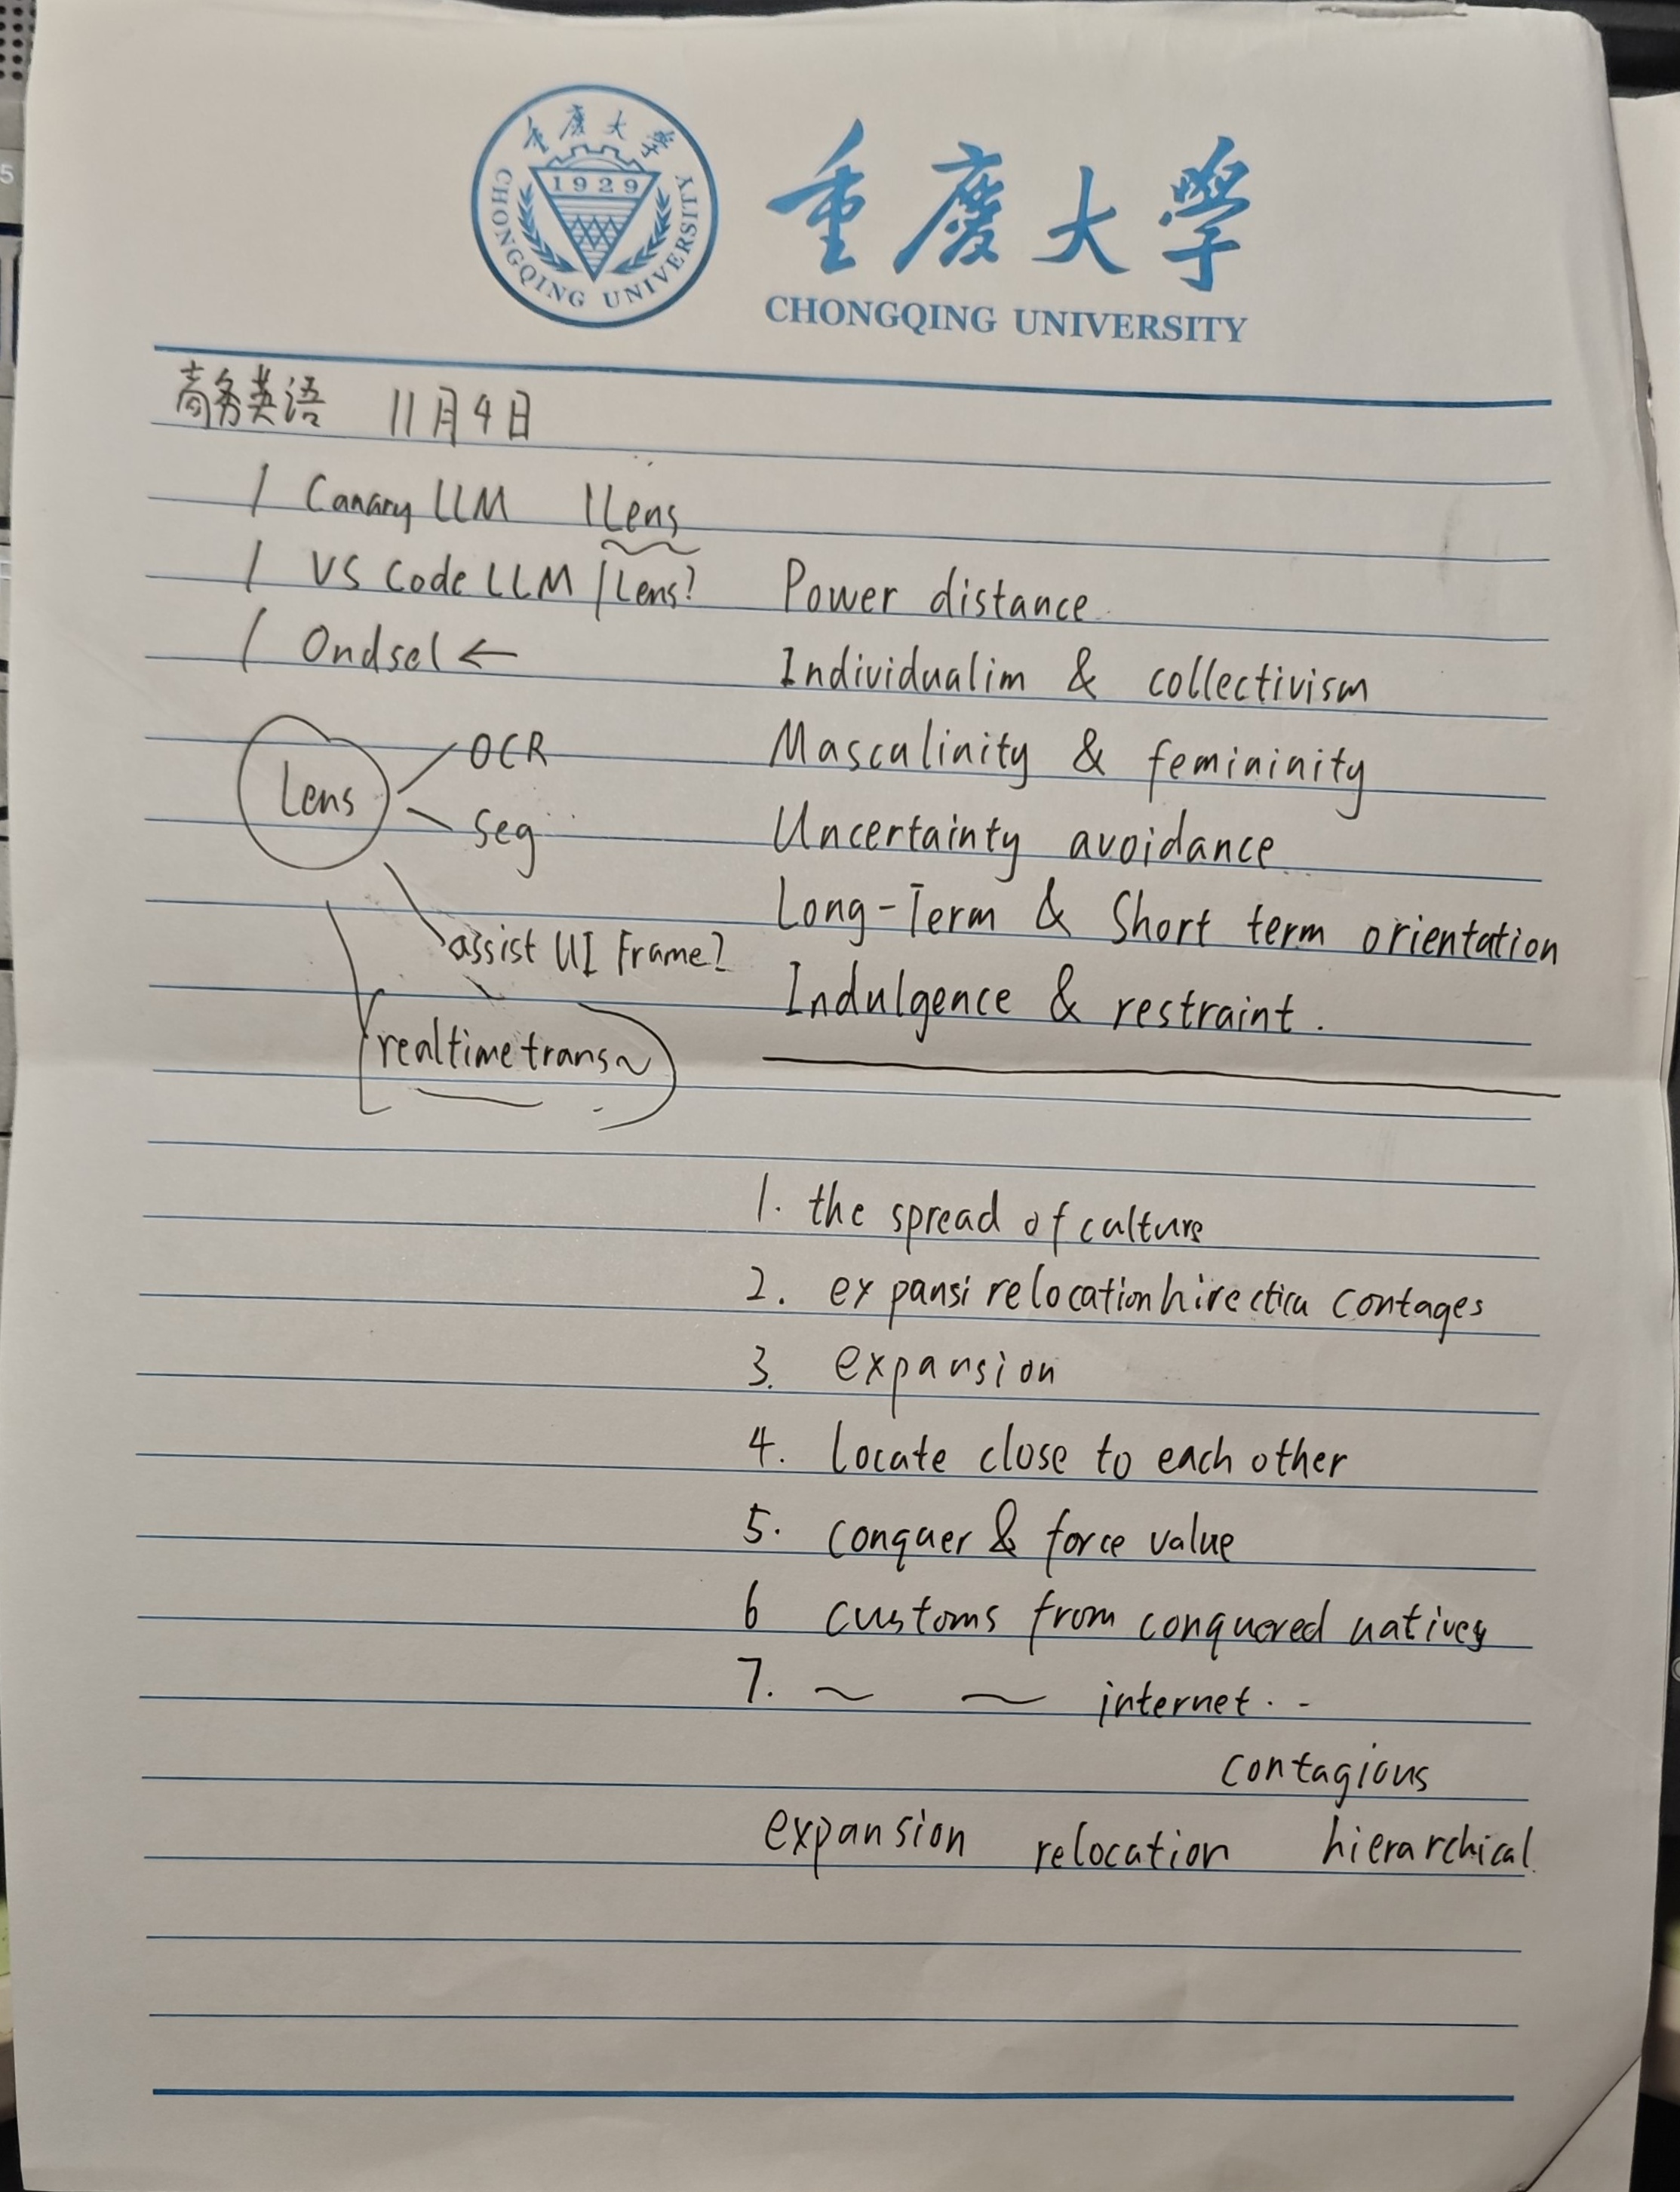 重慶大学
1929
CHONGQING UNIVERSITY
重慶大學
CHONGQING UNIVERSITY
商务英语 11月4日
/ Canary LLM | Lens
/ VS Code LLM / Lens?
/ Ondsel ←
Lens
OCR
Seg
assist UI Frame?
realtime trans~
Power distance
Individualim & collectivism
Masculinity & femininity
Uncertainty avoidance
Long-Term & Short term orientation
Indulgence & restraint.
1. the spread of culture
2. expansi relocation hirecticu contages
3. expansion
4. locate close to each other
5. conquer & force value
6 customs from conquered natives
7. ~ ~ internet..
contagious
expansion relocation hierarchical